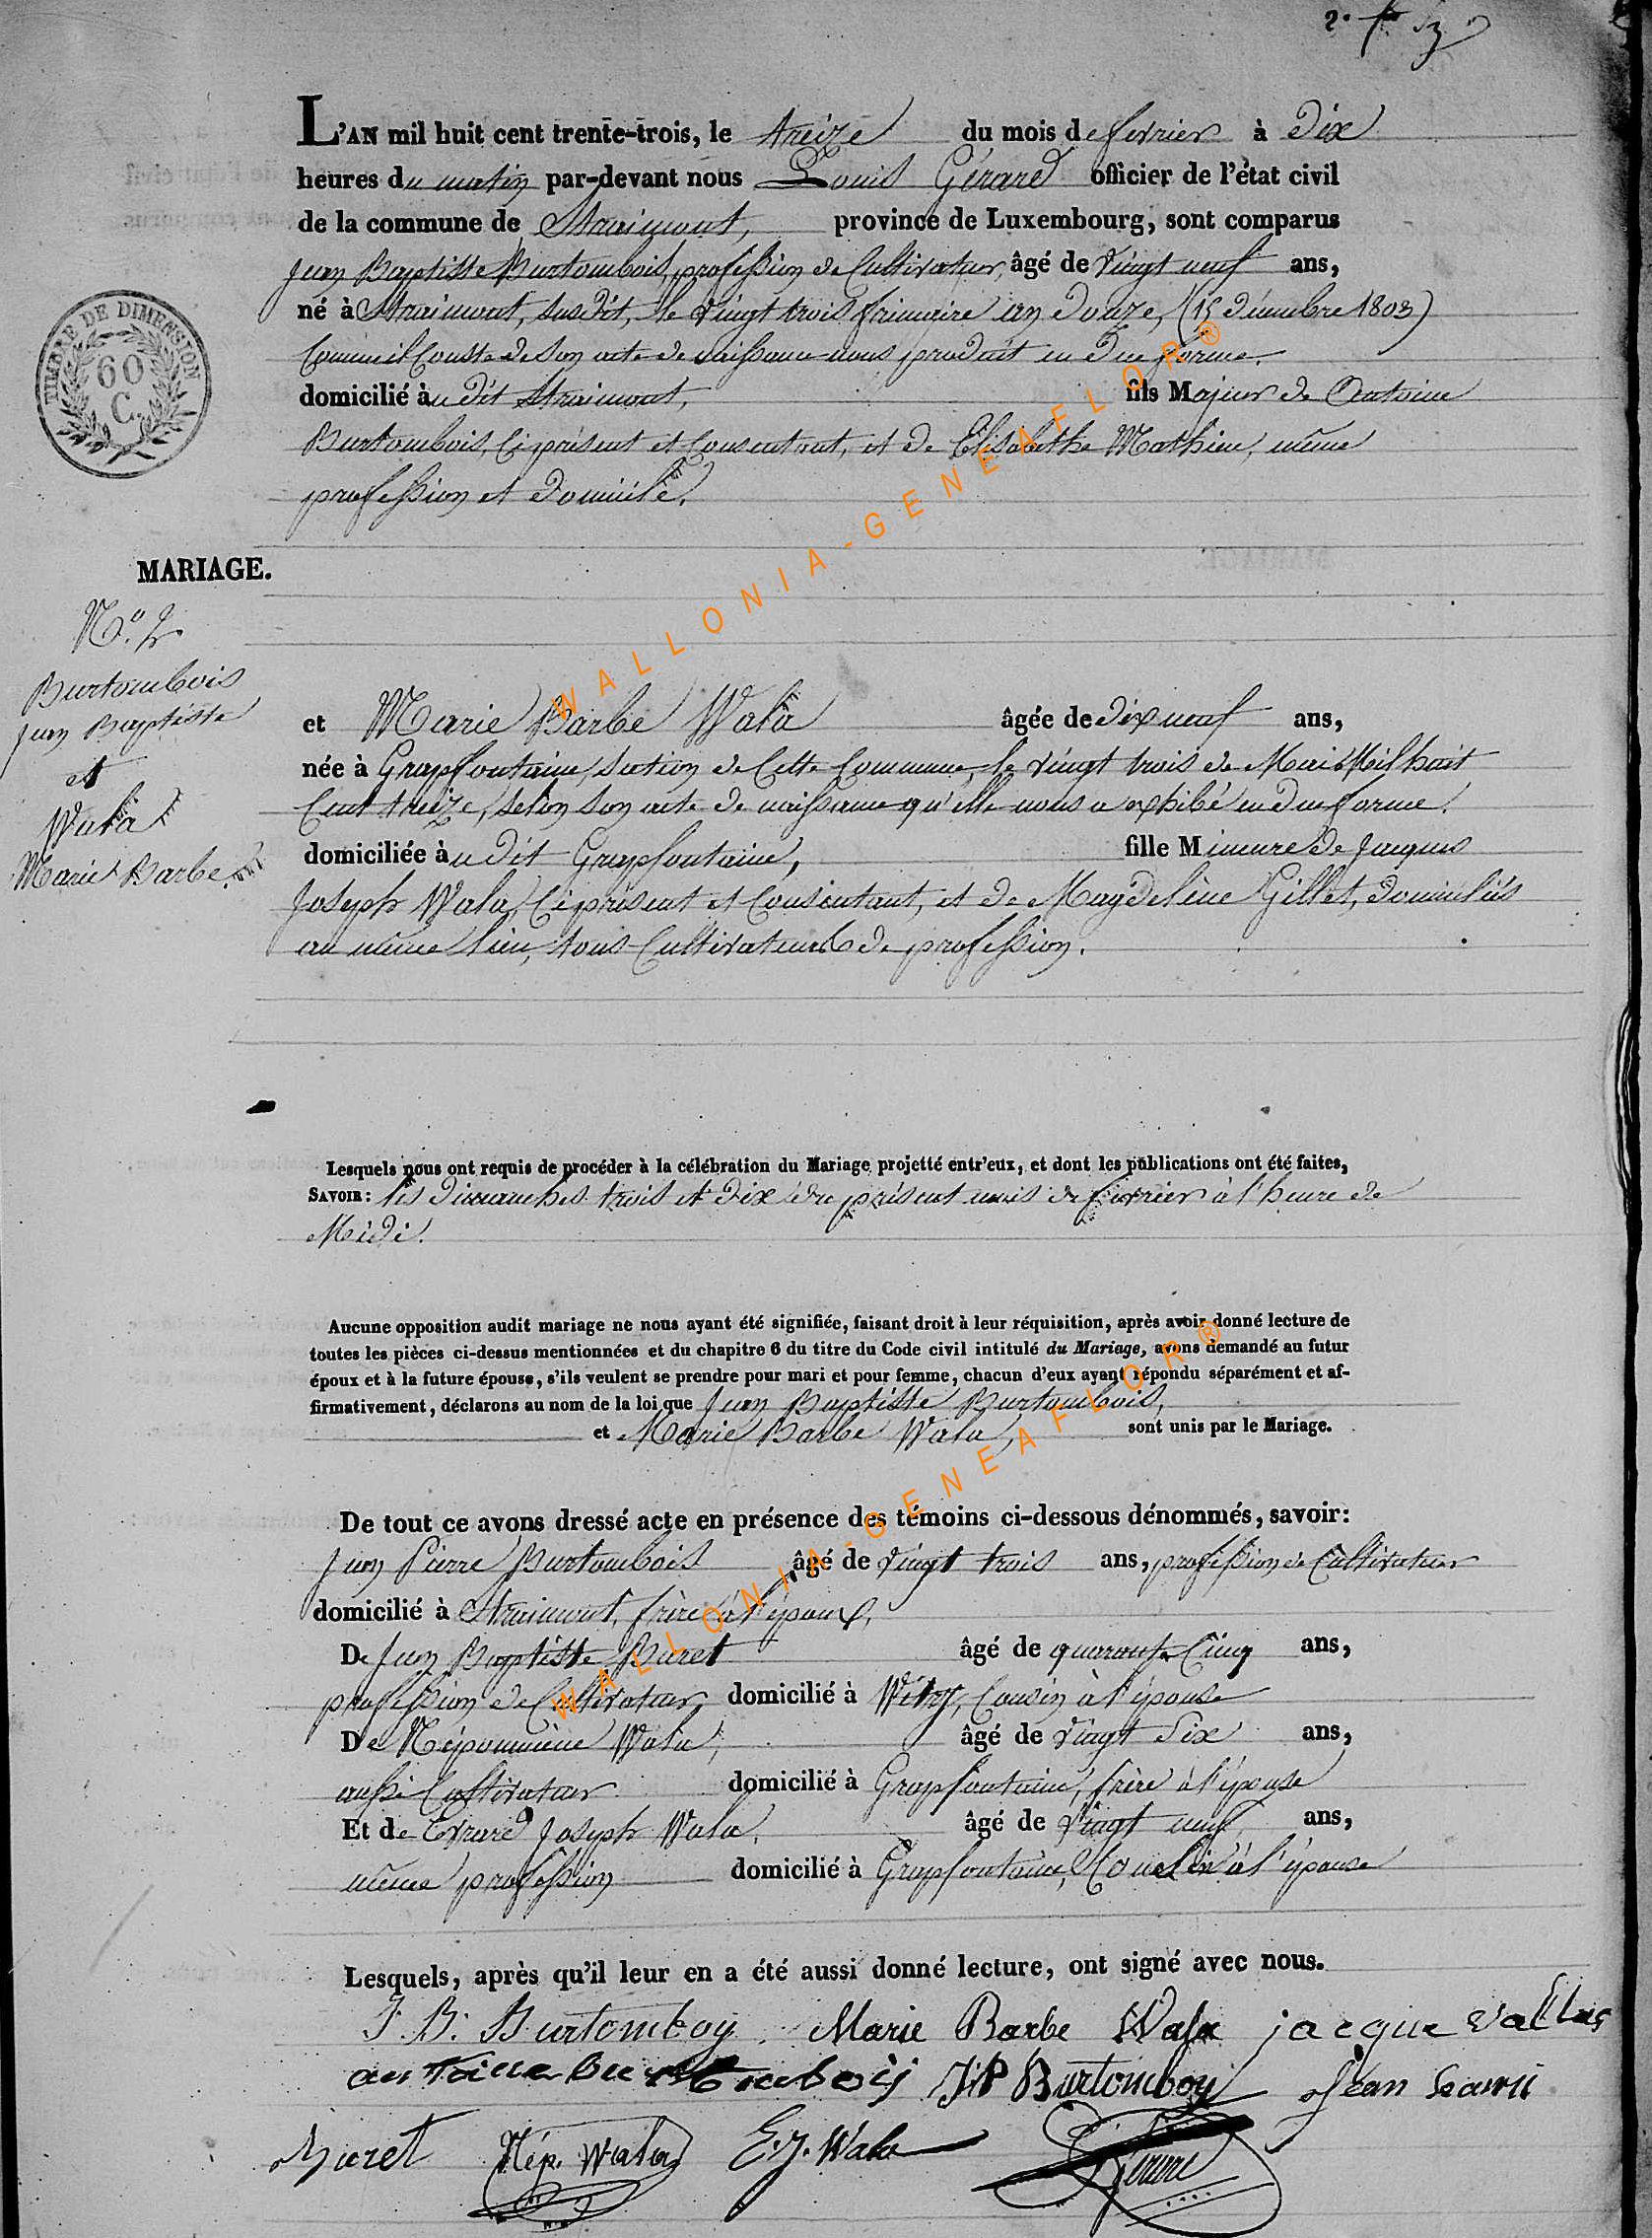 2.e
L'AN mil huit cent trente-trois, le treize du mois de fevrier à dix
heures du matin par-devant nous Louis Gérard officier de l'état civil
de la commune de Straimont, province de Luxembourg, sont comparus
Jean Baptiste Burtombois, profession de Cultivateur, âgé de vingt neuf ans,
né à Straimont, susdit, le vingt trois frimaire an douze, (15 décembre 1803)
Comme il Conste de son acte de naissance nous produit en due forme.
domicilié au dit Straimont, fils Majeur de Antoine
Burtombois, Ci présent et Consentant, et de Elisabethe Mathieu, même
profession et domicile.
TIMBRE DE DIMENSION
60
C.
MARIAGE.
N.o 2
Burtombois
Jean Baptiste
et
Wala
Marie Barbe
et Marie Barbe Wala âgée de dix neuf ans,
née à Grapfontaine, section de Cette Commune, le vingt trois de Mai Mil huit
Cent treize, selon son acte de naissance qu'elle nous a exhibé en due forme.
domiciliée au dit Grapfontaine, fille Mineure de Jacques
Joseph Wala, Ci présent et Consentant, et de Magdelaine Gillet, domiciliés
au même lieu, tous Cultivateurs de profession.
Lesquels nous ont requis de procéder à la célébration du Mariage projetté entr'eux, et dont les publications ont été faites,
SAVOIR: les dimanches trois et dix du présent mois de fevrier à l'heure de
Midi.
Aucune opposition audit mariage ne nous ayant été signifiée, faisant droit à leur réquisition, après avoir donné lecture de
toutes les pièces ci-dessus mentionnées et du chapitre 6 du titre du Code civil intitulé du Mariage, avons demandé au futur
époux et à la future épouse, s'ils veulent se prendre pour mari et pour femme, chacun d'eux ayant répondu séparément et af-
firmativement, déclarons au nom de la loi que Jean Baptiste Burtombois,
et Marie Barbe Wala, sont unis par le Mariage.
De tout ce avons dressé acte en présence des témoins ci-dessous dénommés, savoir:
Jean Pierre Burtombois âgé de vingt trois ans, profession de Cultivateur
domicilié à Straimont, frère à l'époux,
De Jean Baptiste Buret âgé de quarante Cinq ans,
profession de Cultivateur, domicilié à Witry, Cousin à l'épouse
De Népomucène Wala, âgé de vingt Six ans,
aussi Cultivateur domicilié à Grapfontaine, frère à l'épouse
Et de Evrard Joseph Wala, âgé de vingt neuf ans,
même profession domicilié à Grapfontaine, Cousin à l'épouse
Lesquels, après qu'il leur en a été aussi donné lecture, ont signé avec nous.
J. B. Burtomboy Marie Barbe Wala jacque Wallas
antoine burtombois J:P Burtomboy Jean
Buret Nép. Wala E. J. Wala Gérard
WALLONIA-GENEAFLOR®
WALLONIA-GENEAFLOR®